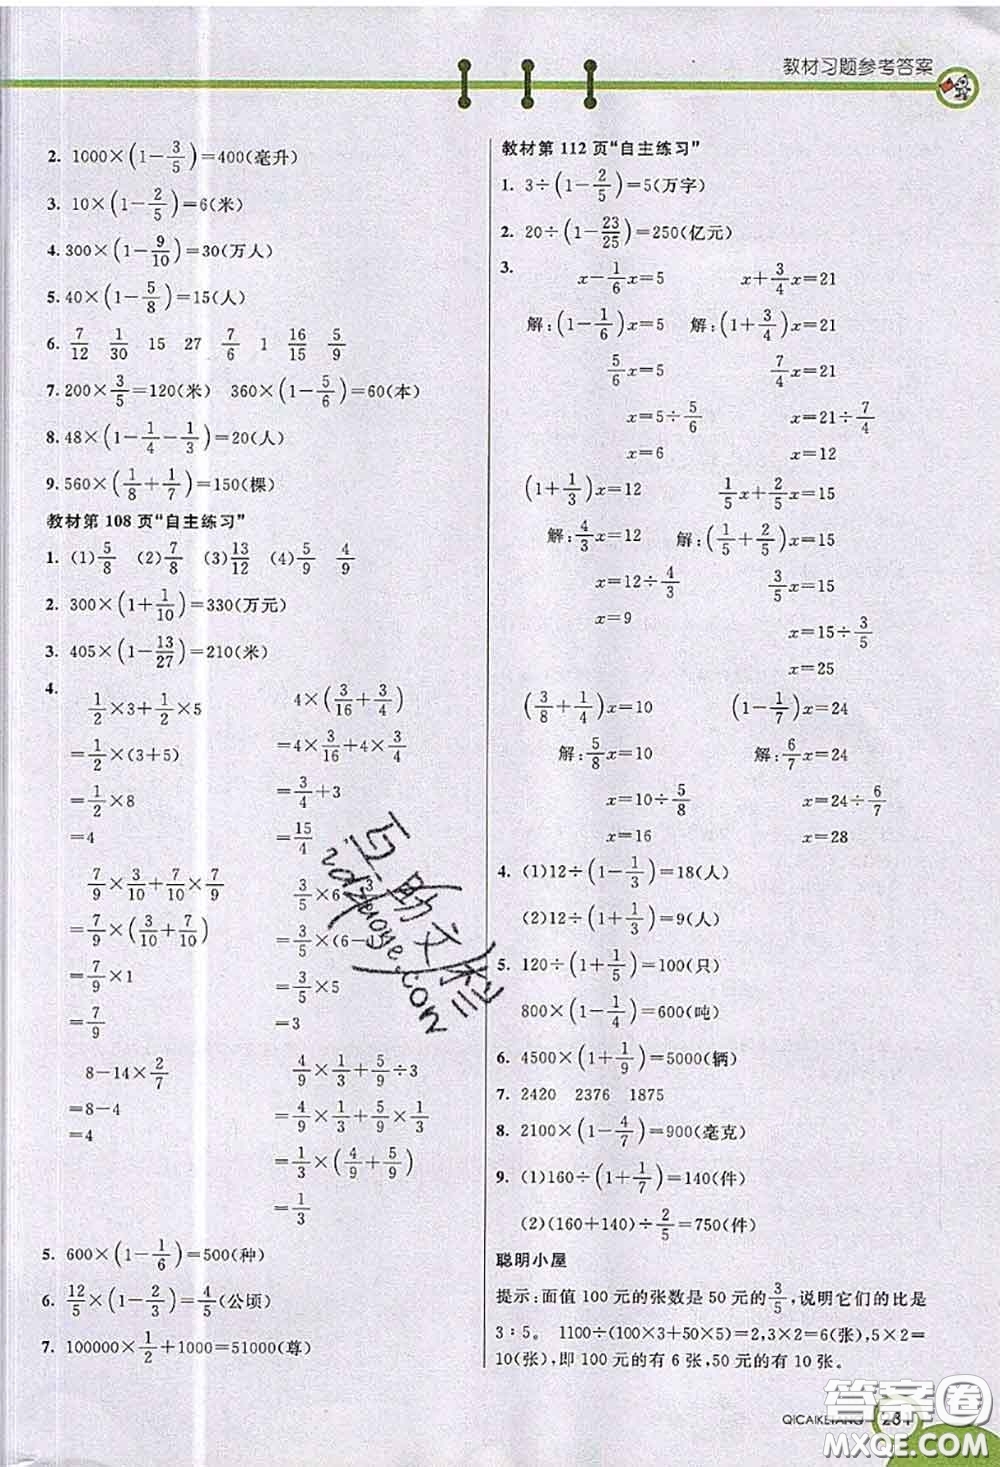 教材习题参考答案
2. 1000×(1−3/5)=400(毫升)
3. 10×(1−2/5)=6(米)
4. 300×(1−9/10)=30(万人)
5. 40×(1−5/8)=15(人)
6. 7/12 1/30 15 27 7/6 1 16/15 5/9
7. 200×3/5=120(米) 360×(1−5/6)=60(本)
8. 48×(1−1/4−1/3)=20(人)
9. 560×(1/8+1/7)=150(棵)
教材第 108 页“自主练习”
1. (1)5/8 (2)7/8 (3)13/12 (4)5/9 4/9
2. 300×(1+1/10)=330(万元)
3. 405×(1−13/27)=210(米)
4.
1/2×3+1/2×5 4×(3/16+3/4)
=1/2×(3+5) =4×3/16+4×3/4
=1/2×8 =3/4+3
=4 =15/4
7/9×3/10+7/10×7/9 3/5×6−3/5
=7/9×(3/10+7/10) =3/5×(6−
=7/9×1 =3/5×5
=7/9 =3
8−14×2/7 4/9×1/3+5/9÷3
=8−4 =4/9×1/3+5/9×1/3
=4 =1/3×(4/9+5/9)
=1/3
5. 600×(1−1/6)=500(种)
6. 12/5×(1−2/3)=4/5(公顷)
7. 100000×1/2+1000=51000(尊)
教材第 112 页“自主练习”
1. 3÷(1−2/5)=5(万字)
2. 20÷(1−23/25)=250(亿元)
3.
x−1/6x=5 x+3/4x=21
解:(1−1/6)x=5 解:(1+3/4)x=21
5/6x=5 7/4x=21
x=5÷5/6 x=21÷7/4
x=6 x=12
(1+1/3)x=12 1/5x+2/5x=15
解:4/3x=12 解:(1/5+2/5)x=15
x=12÷4/3 3/5x=15
x=9 x=15÷3/5
x=25
(3/8+1/4)x=10 (1−1/7)x=24
解:5/8x=10 解:6/7x=24
x=10÷5/8 x=24÷6/7
x=16 x=28
4. (1)12÷(1−1/3)=18(人)
(2)12÷(1+1/3)=9(人)
5. 120÷(1+1/5)=100(只)
800×(1−1/4)=600(吨)
6. 4500×(1+1/9)=5000(辆)
7. 2420 2376 1875
8. 2100×(1−4/7)=900(毫克)
9. (1)160÷(1+1/7)=140(件)
(2)(160+140)÷2/5=750(件)
聪明小屋
提示:面值 100 元的张数是 50 元的3/5,说明它们的比是
3∶5。 1100÷(100×3+50×5)=2,3×2=6(张),5×2=
10(张),即 100 元的有 6 张,50 元的有 10 张。
QICAIKETANG 281
答案圈
MXQE.COM